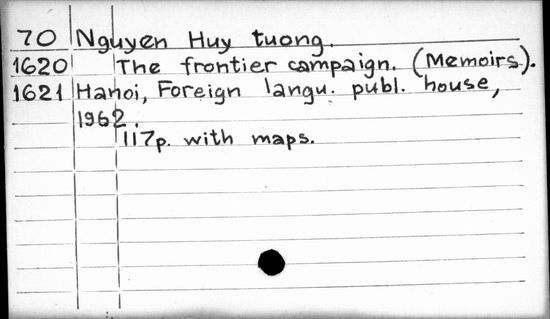 70 Nguyen Huy tuong.
1620 The frontier campaign. (Memoirs).
1621 Hanoi, Foreign langu. publ. house,
1962.
117p. with maps.